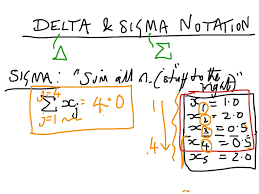 DELTA & SIGMA NOTATION
Δ Σ
SIGMA: "Sum all n. (stuff to the right)"
j=4
Σ xj = 4.0
j=1
1
4
x1 = 1.0
x2 = 2.0
x3 = 0.5
x4 = 0.5
x5 = 2.0